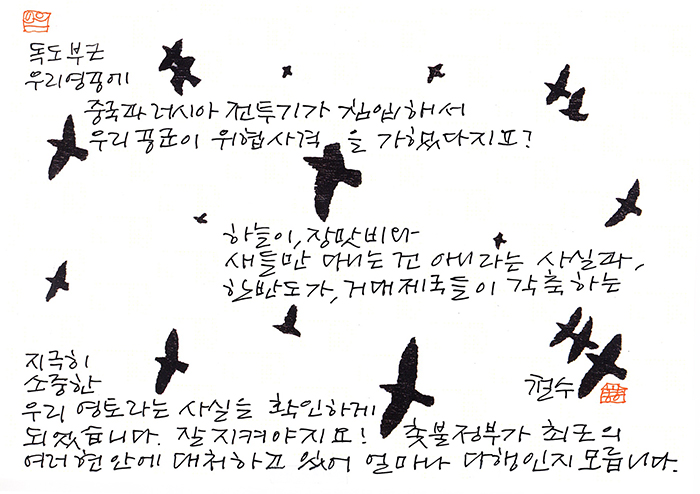 독도부근
우리영공에
중국과 러시아 전투기가 침입해서
우리 공군이 위협사격을 가했다지요?
하늘이, 장맛비와
새들만 다니는 건 아니라는 사실과,
한반도가, 거대제국들이 각축하는
지극히
소중한
우리 영토라는 사실을 확인하게
되었습니다. 잘 지켜야지요! 촛불정부가 최근의
여러현안에 대처하고 있어 얼마나 다행인지 모릅니다.
철수